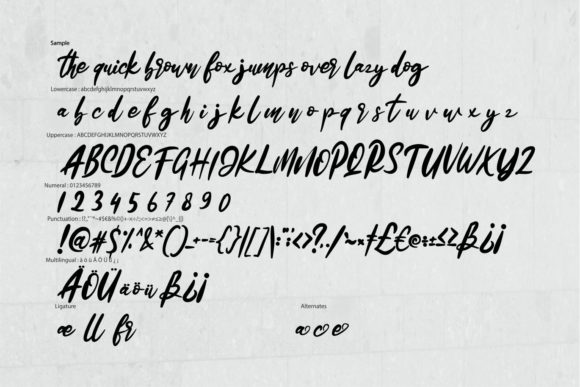 Sample
the quick brown fox jumps over lazy dog
Lowercase : abcdefghijklmnopqrstuvwxyz
a b c d e f g h i j k l m n o p q r s t u v w x y z
Uppercase : ABCDEFGHIJKLMNOPQRSTUVWXYZ
ABCDEFGHIJKLMNOPQRSTUVWXYZ
Numeral : 0123456789
1 2 3 4 5 6 7 8 9 0
!@#$%^&*()_+-={}|[]\:";'<>?,./~
Multilingual : ä ö ü Ä Ö Ü ß ¿ ¡
ÄÖÜäöüß¿¡
Ligature
Alternates
æ ll fr
a c e